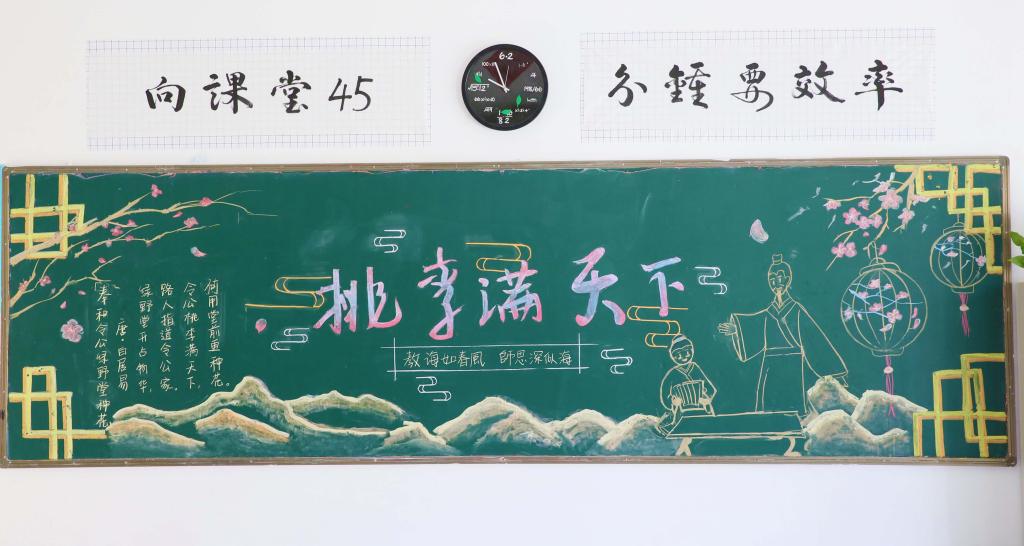 向课堂45
分鍾要效率
奉和令公绿野堂种花
唐·白居易
绿野堂开占物华,
路人指道令公家。
令公桃李满天下,
何用堂前更种花。
桃李满天下
教诲如春風 師恩深似海